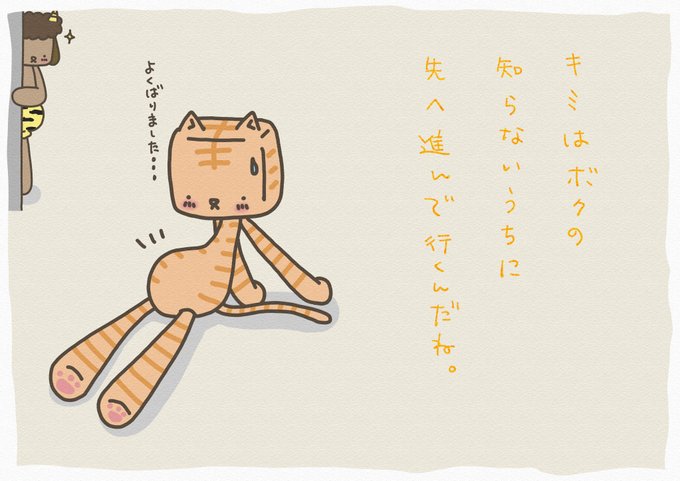 キミはボクの
知らないうちに
先へ進んで行くんだね。
よくばりました・・・